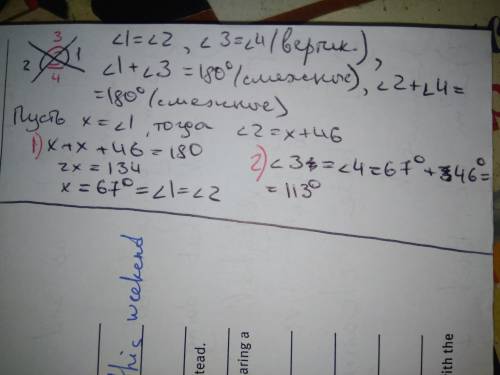 3
2 1
4
∠1=∠2, ∠3=∠4 (вертик.),
∠1+∠3=180° (смежные), ∠2+∠4=
=180° (смежные)
Пусть x=∠1, тогда ∠2=x+46
1) x+x+46=180
2x=134
x=67°=∠1=∠2
2) ∠3=∠4=67°+46°=
=113°
This weekend
tead.
aring a
with the